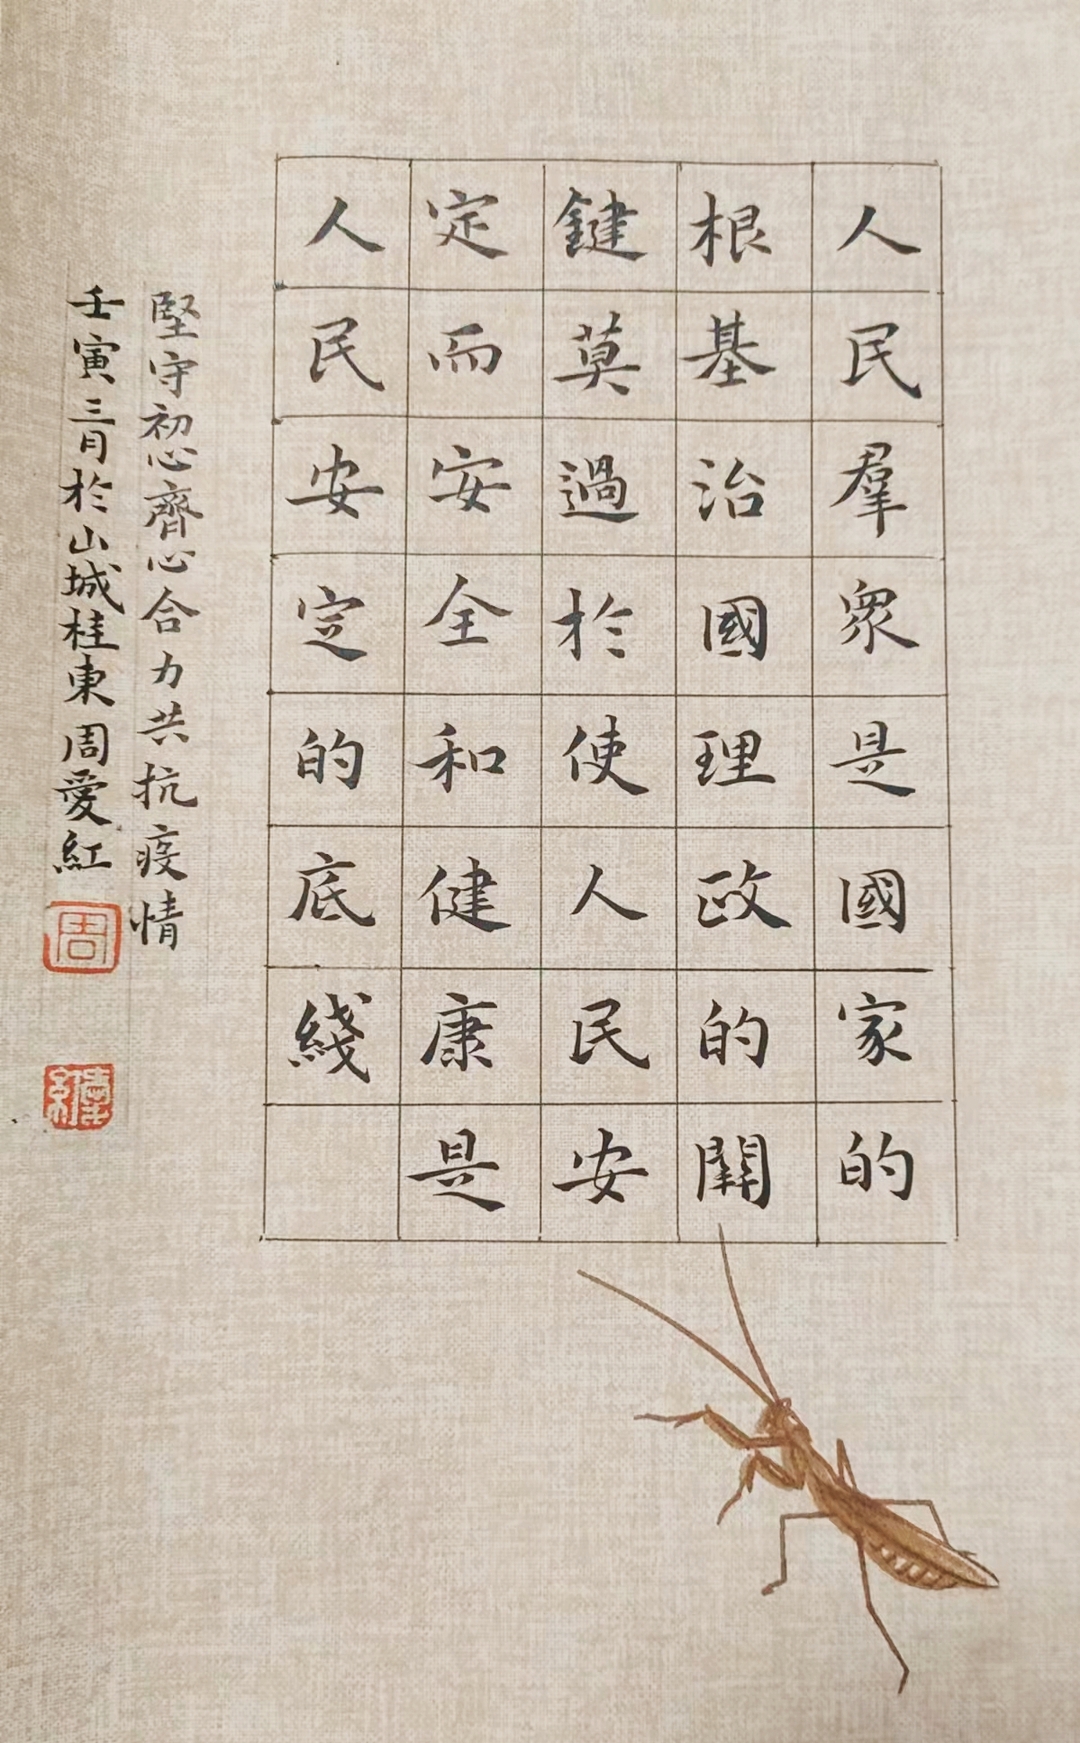 人民羣衆是國家的
根基治國理政的關
鍵莫過於使人民安
定而安全和健康是
人民安定的底綫
堅守初心齊心合力共抗疫情
壬寅三月於山城桂東周愛紅
周